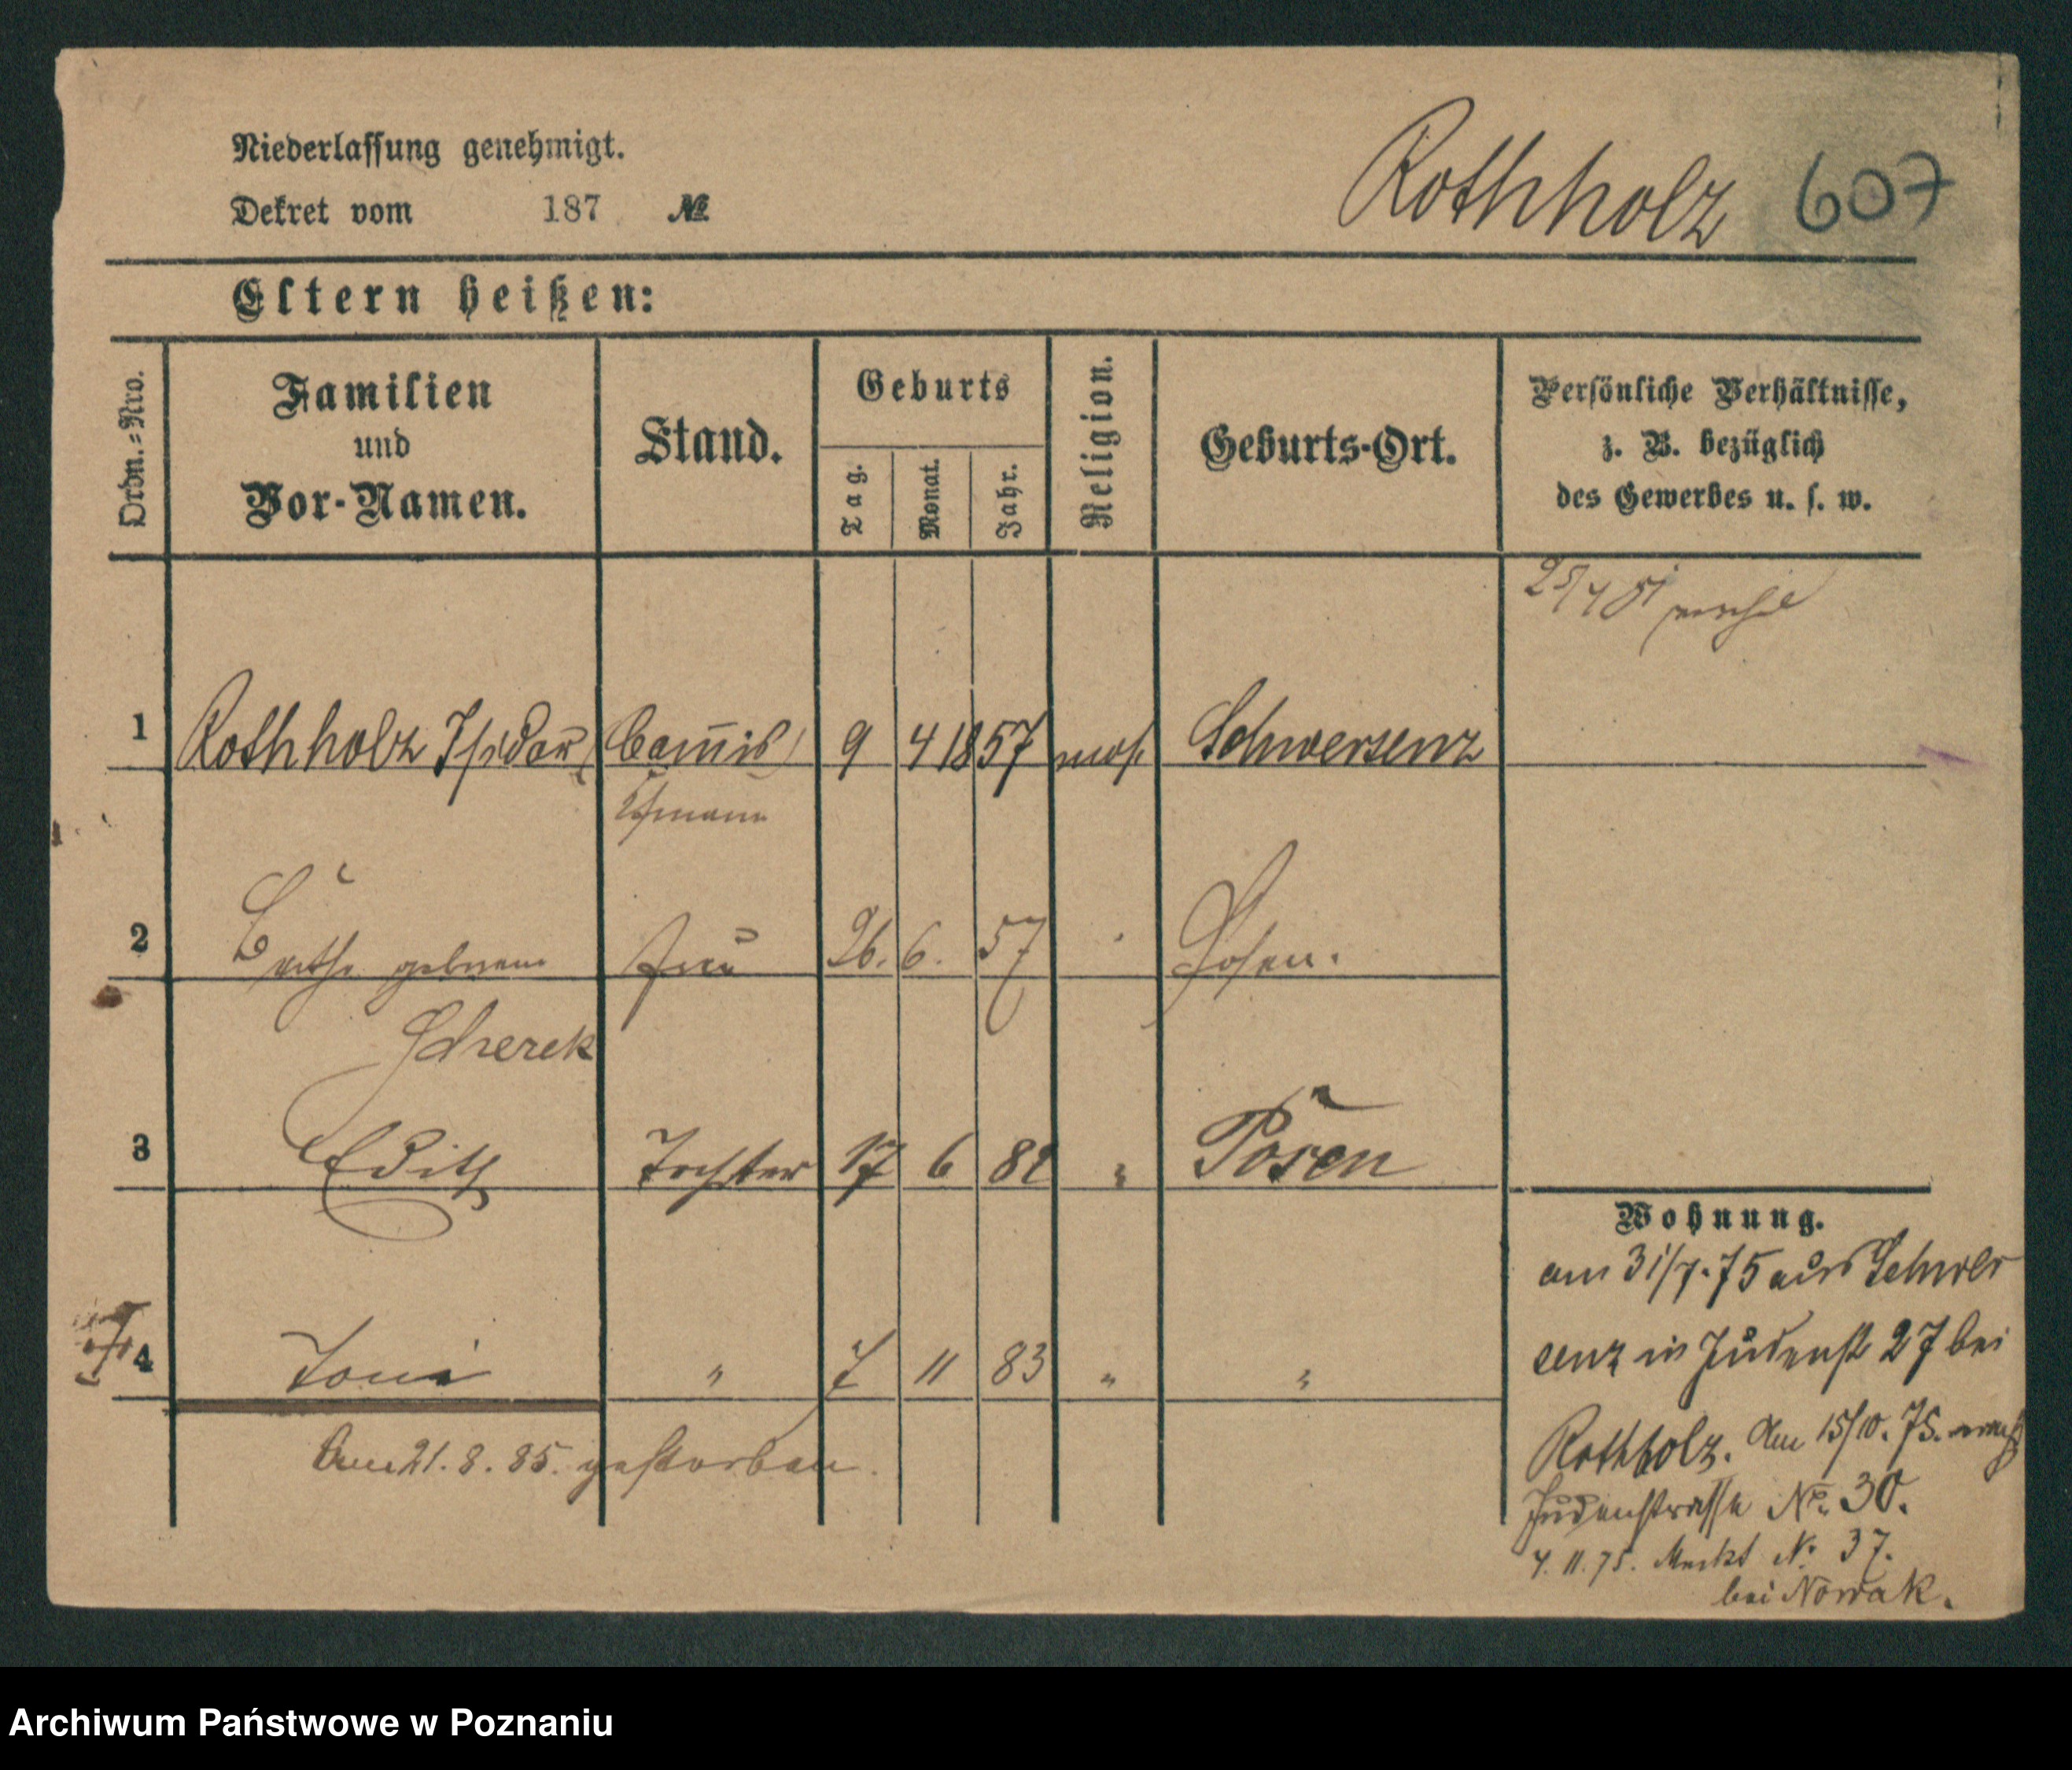 Niederlassung genehmigt.
Dekret vom 187 №
Rothholz 607
Eltern heißen:
Ordn.=Nro.
Familien
und
Vor-Namen.
Stand.
Geburts
Tag.
Monat.
Jahr.
Religion.
Geburts-Ort.
Persönliche Verhältnisse,
z. B. bezüglich
des Gewerbes u. s. w.
1 Rothholz Isidor Com̅is 9 4 1857 mos. Schwersenz
Kfmann
2 geborene Frau 26. 6. 57 Posen.
Scherek
3 Edith Tochter 17 6 82 " Posen
4 Toni " 7 11 83 " "
Am 21. 8. 85. gestorben.
Wohnung.
am 31/7. 75 aus Schwer
senz in Judenstr 27 bei
Rothholz. Am 15/10. 75. nach
Judenstrasse No. 30.
4. 11. 75. Markt No 37.
bei Nowak.
Archiwum Państwowe w Poznaniu